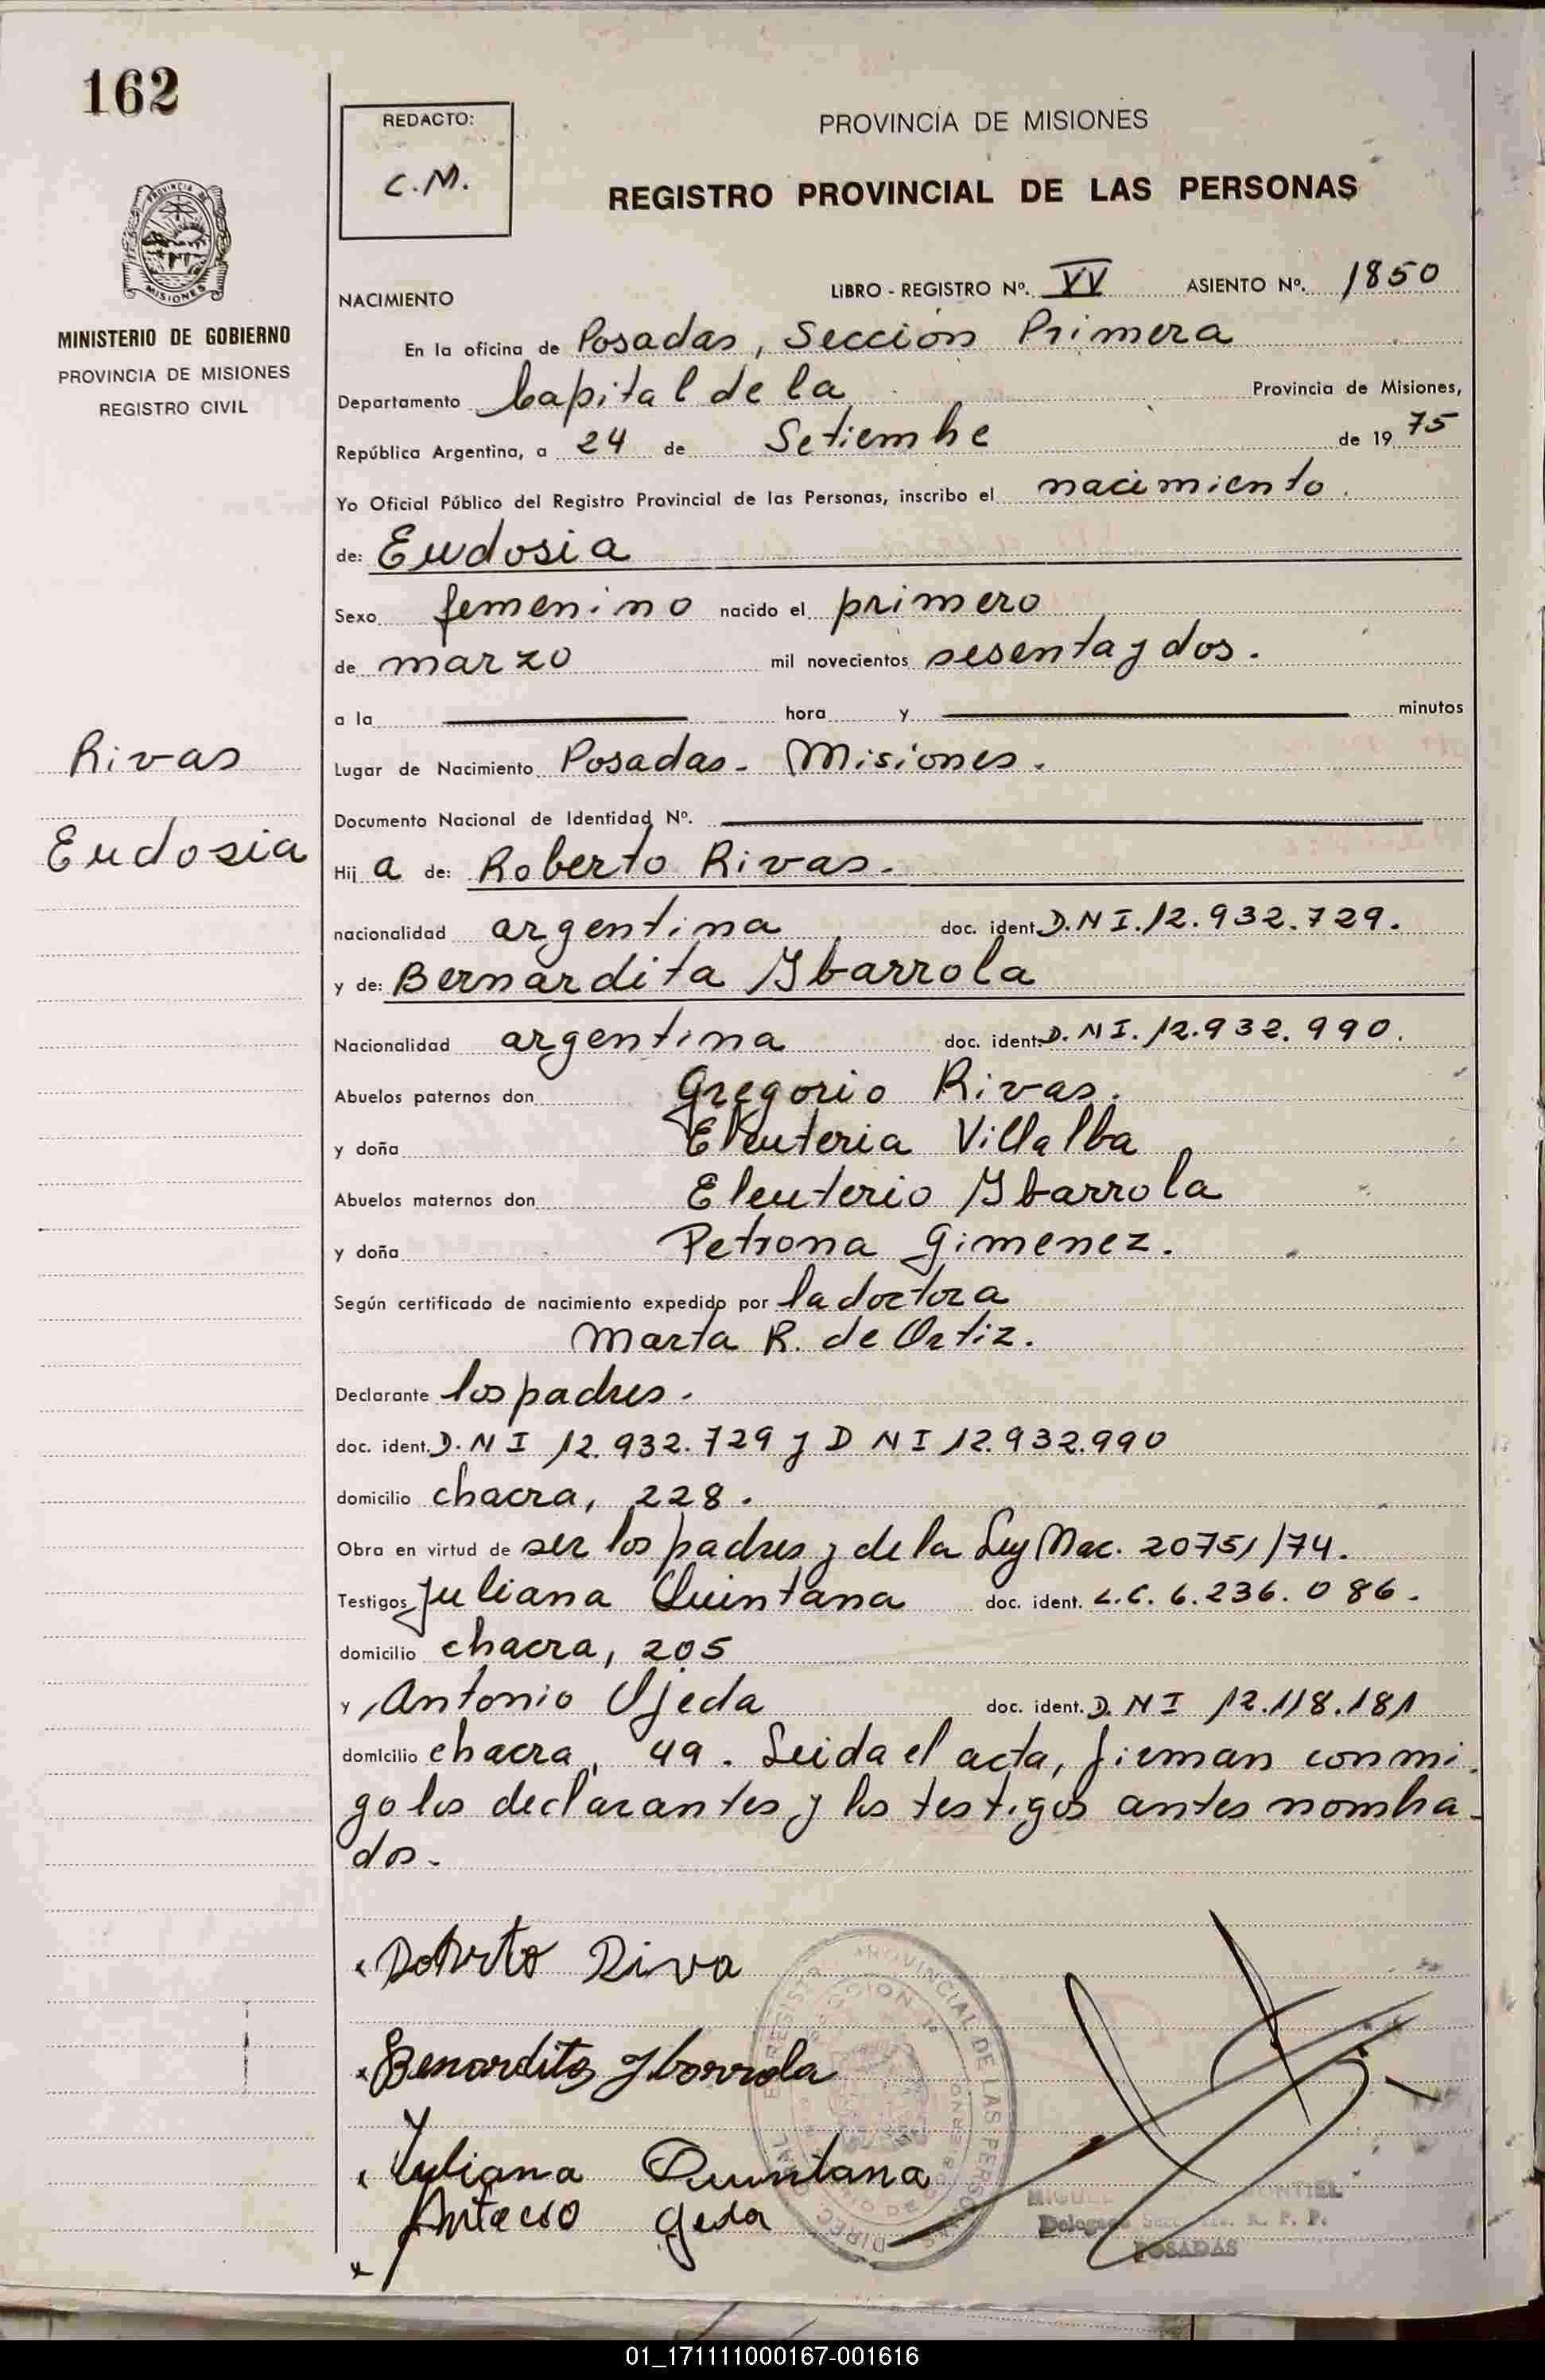 162
REDACTO:
C.M.
PROVINCIA DE MISIONES
REGISTRO PROVINCIAL DE LAS PERSONAS
PROVINCIA DE
MISIONES
MINISTERIO DE GOBIERNO
PROVINCIA DE MISIONES
REGISTRO CIVIL
NACIMIENTO
LIBRO - REGISTRO Nº. ASIENTO Nº. 1850
En la oficina de Posadas, Sección Primera
Departamento Capital de la Provincia de Misiones,
República Argentina, a 24 de Setiembe de 19 75
Yo Oficial Público del Registro Provincial de las Personas, inscribo el nacimiento.
de: Eudosia
Sexo femenino nacido el primero
de marzo mil novecientos sesenta y dos.
a la hora y minutos
Rivas
Lugar de Nacimiento Posadas - Misiones.
Documento Nacional de Identidad Nº.
Eudosia
Hij a de: Roberto Rivas.
nacionalidad argentina doc. ident. D.N I. 12.932.729.
y de: Bernardita Ybarrola
Nacionalidad argentina doc. ident. D. N I. 12.932.990.
Abuelos paternos don Gregorio Rivas.
y doña Eleuteria Villalba
Abuelos maternos don Eleuterio Ybarrola
y doña Petrona Gimenez.
Según certificado de nacimiento expedido por la doctora
Marta R. de Ortiz.
Declarante los padres.
doc. ident. D. N I 12.932.729 y D N I 12.932.990
domicilio chacra, 228.
Obra en virtud de ser los padres y de la Ley Nac. 20751/74.
Testigos Juliana Quintana doc. ident. L.C. 6.236.086.
domicilio chacra, 205
y Antonio Ojeda doc. ident. D. N I 12.118.181
domicilio chacra, 49. Leida el acta, firman conmi-
go los declarantes y los testigos antes nombra-
dos.
Roberto Riva
Benardita Yborrola
Yuliana Quintana
geda
REGISTRO PROVINCIAL DE LAS PERSONAS
SECCION 1ª
MIGUEL MONTIEL
R. P. P.
POSADAS
01_171111000167-001616